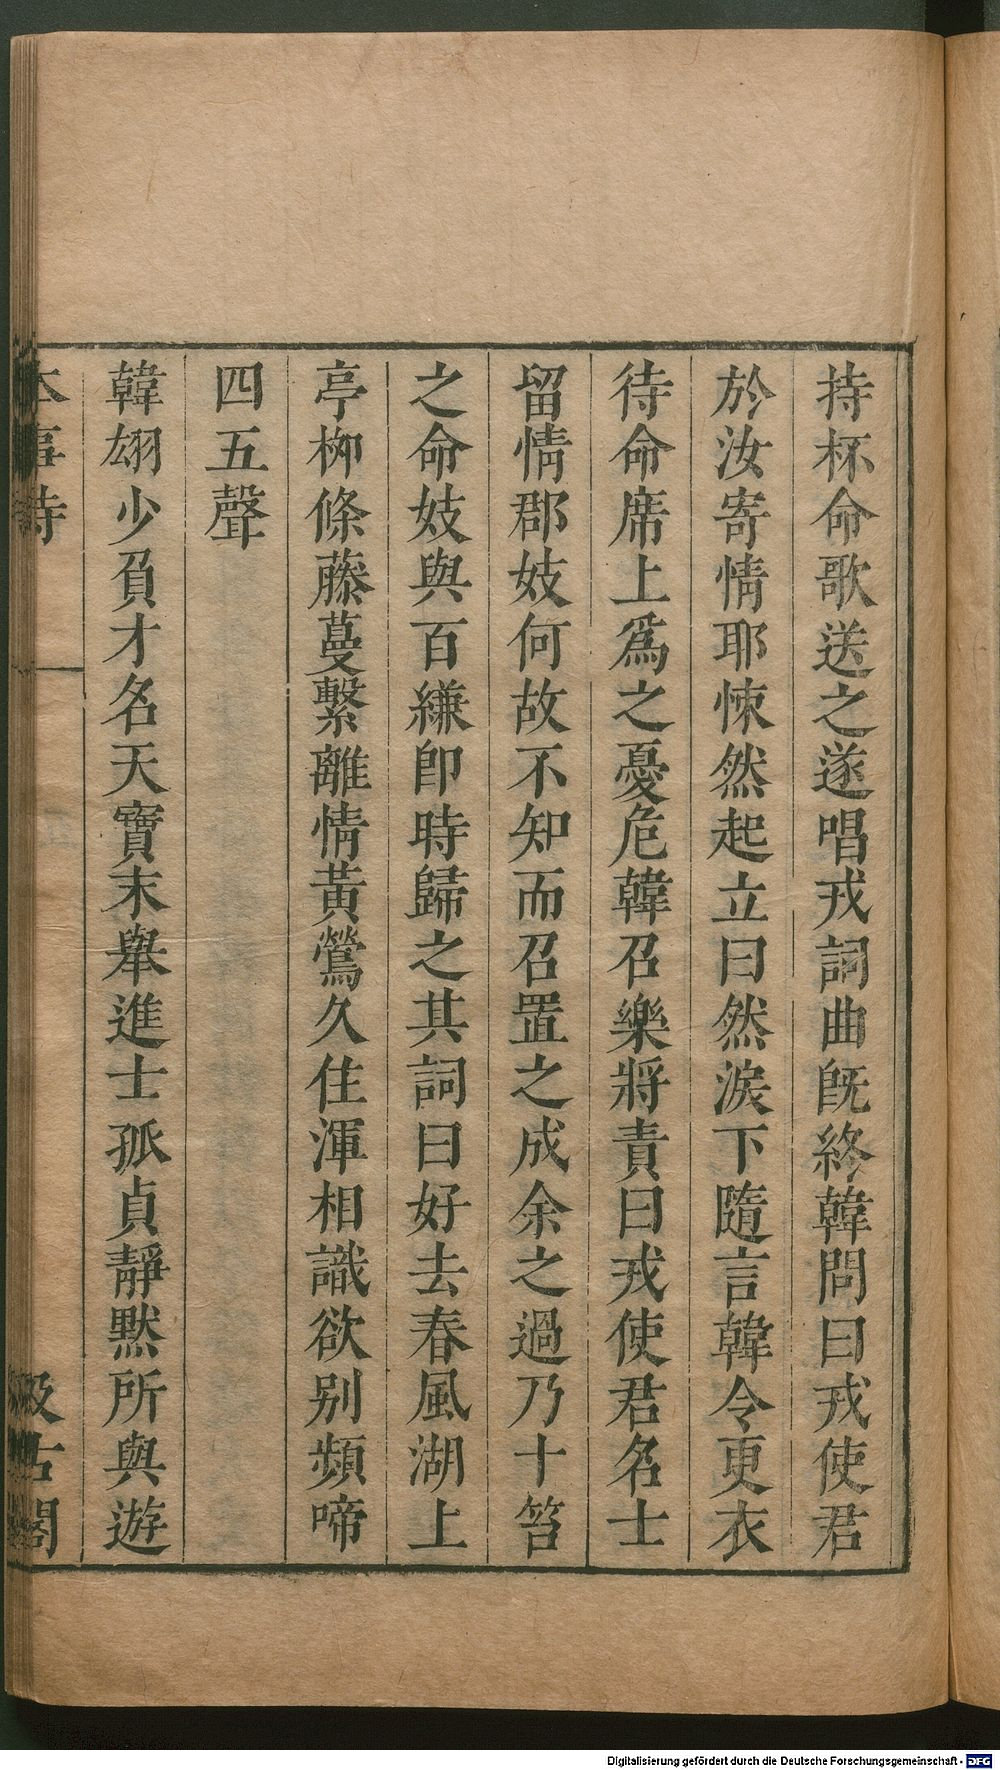 持杯命歌送之遂唱戎詞曲旣終韓問曰戎使君
於汝寄情耶悚然起立曰然淚下隨言韓令更衣
待命席上爲之憂危韓召樂將責曰戎使君名士
留情郡妓何故不知而召置之成余之過乃十笞
之命妓與百縑卽時歸之其詞曰好去春風湖上
亭柳條藤蔓繫離情黃鶯久住渾相識欲别頻啼
四五聲
韓翃少負才名天寶末舉進士孤貞靜默所與遊
本事詩
汲古閣
Digitalisierung gefördert durch die Deutsche Forschungsgemeinschaft - DFG